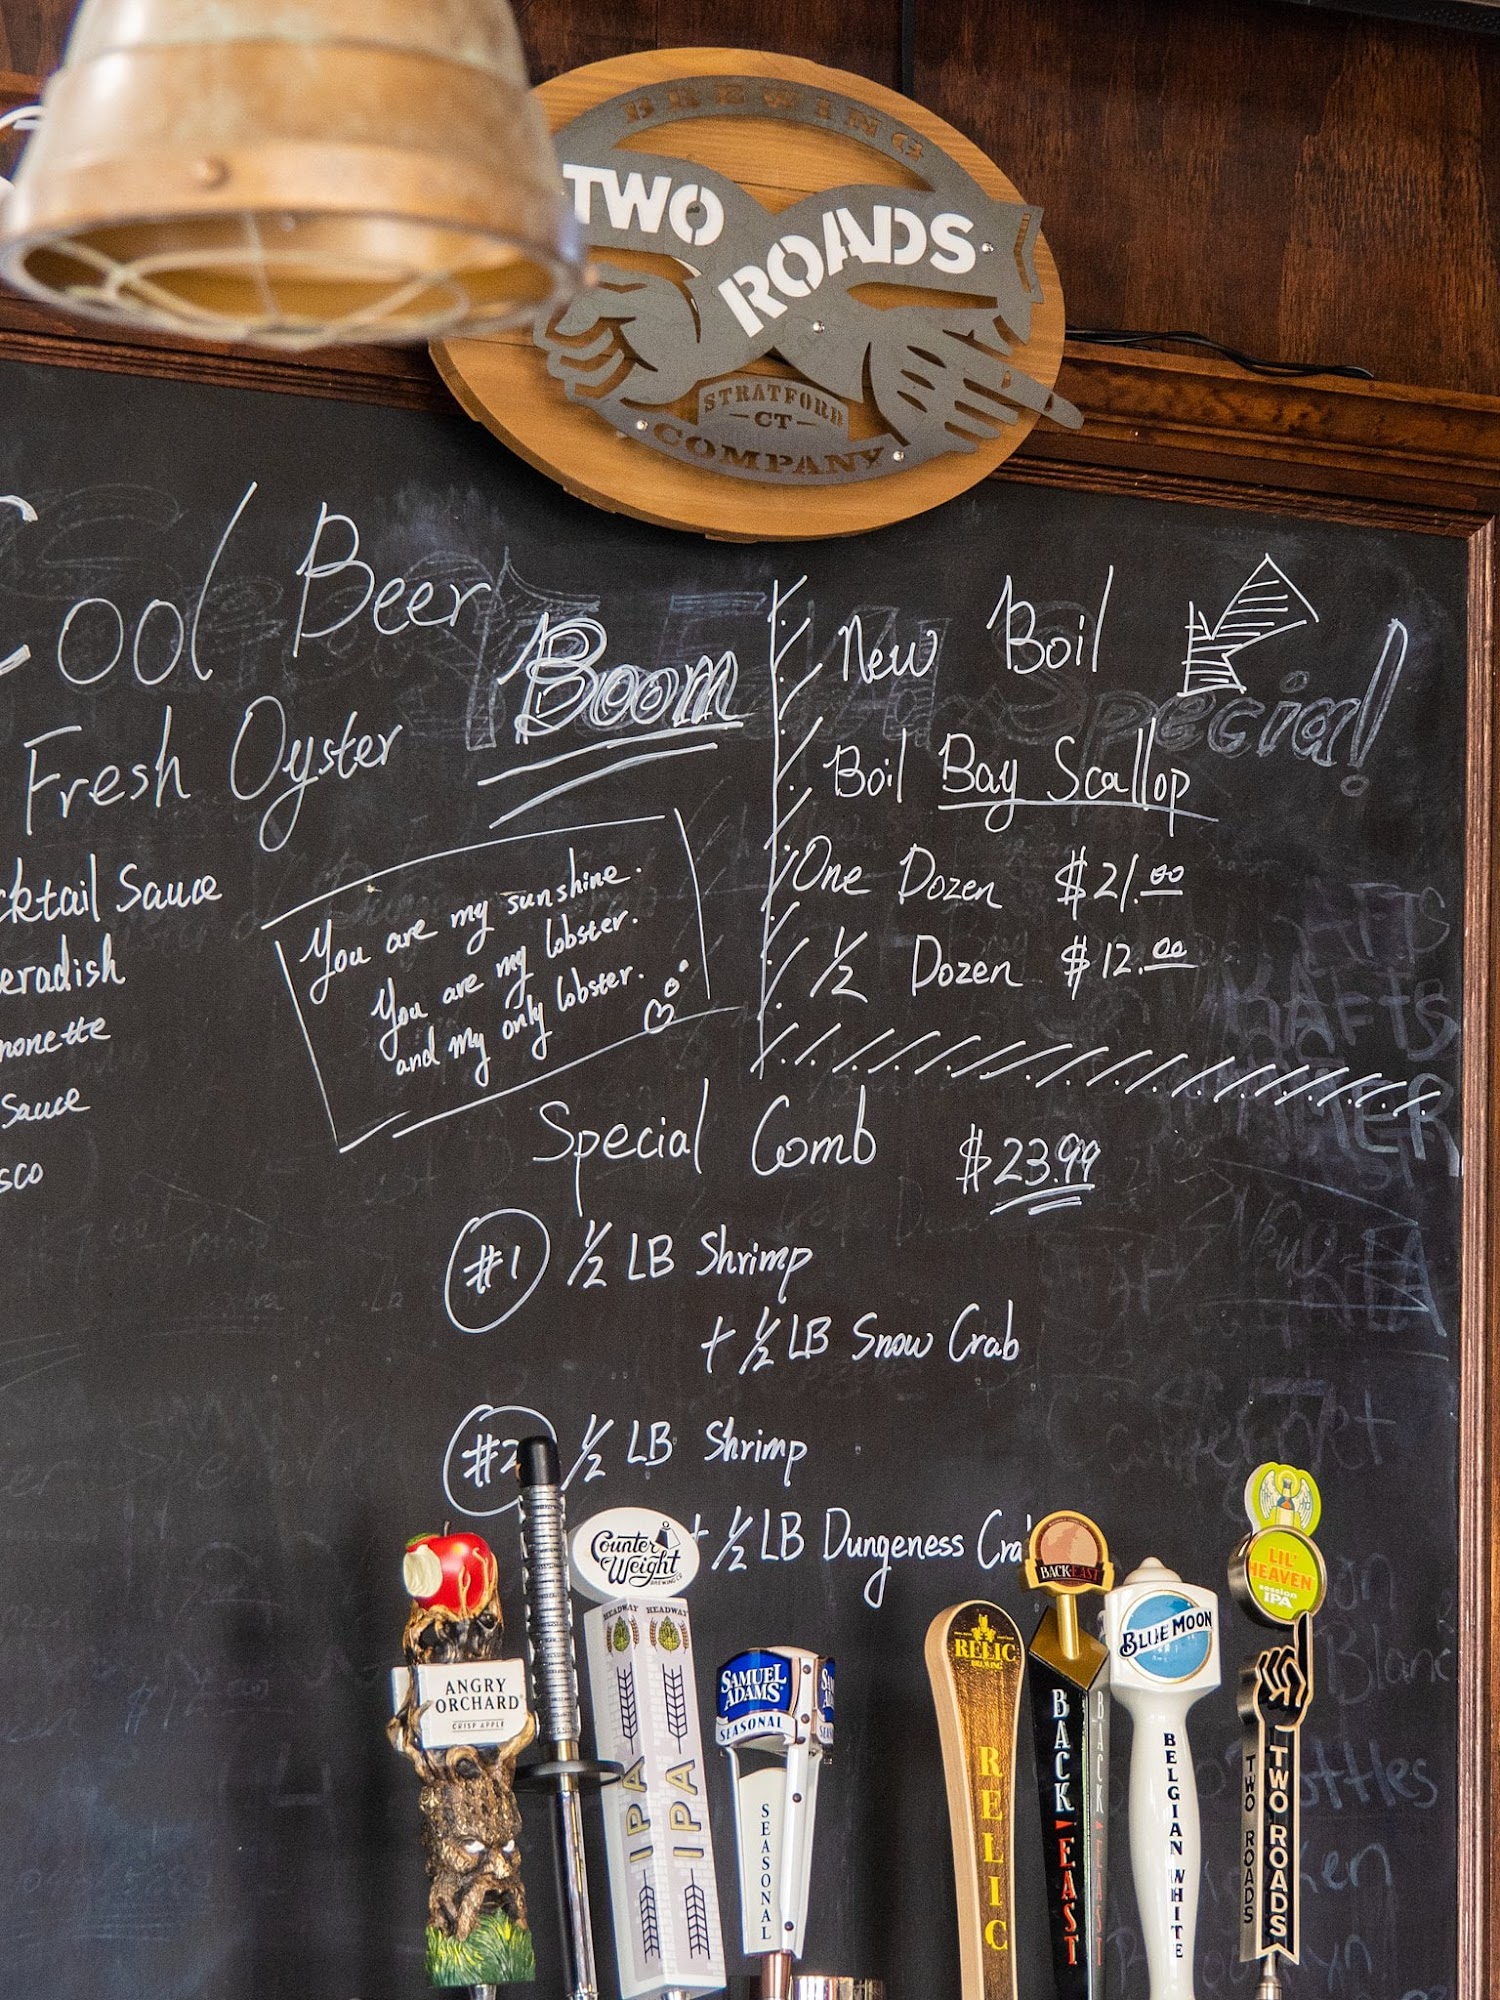 BREWING
TWO ROADS
STRATFORD
CT
COMPANY
Cool Beer
Boom
Fresh Oyster
cktail Sauce
eradish
nonette
Sauce
sco
You are my sunshine.
You are my lobster.
and my only lobster.
New Boil
Special!
Boil Bay Scallop
One Dozen $21.00
1/2 Dozen $12.00
Special Comb $23.99
#1 1/2 LB Shrimp
+ 1/2 LB Snow Crab
#2 1/2 LB Shrimp
+ 1/2 LB Dungeness Cra
ANGRY
ORCHARD
CRISP APPLE
Counter
Weight
BREWING CO
HEADWAY HEADWAY
IPA IPA
SAMUEL
ADAMS
SEASONAL
SEASONAL
RELIC
BREWING
RELIC
BACK EAST
BACK EAST
BACK EAST
BLUE MOON
BELGIAN WHITE
LIL'
HEAVEN
session
IPA
TWO ROADS
TWO ROADS